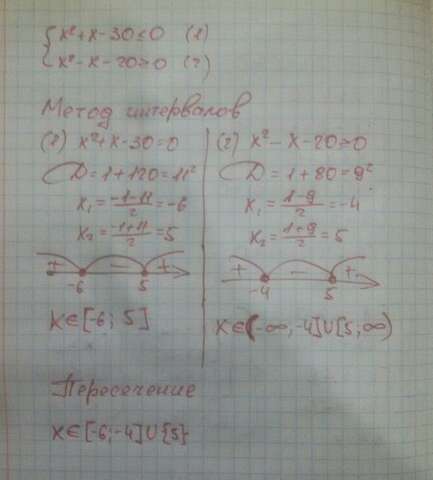 { x² + x - 30 ≤ 0 (1)
{ x² - x - 20 ≥ 0 (2)
Метод интервалов
(1) x² + x - 30 = 0
D = 1 + 120 = 11²
x₁ = (-1-11)/2 = -6
x₂ = (-1+11)/2 = 5
+ - +
-6 5
x ∈ [-6; 5]
(2) x² - x - 20 ≥ 0
D = 1 + 80 = 9²
x₁ = (1-9)/2 = -4
x₂ = (1+9)/2 = 5
+ - +
-4 5
x ∈ (-∞, -4] ∪ [5; ∞)
Пересечение
x ∈ [-6; -4] ∪ {5}